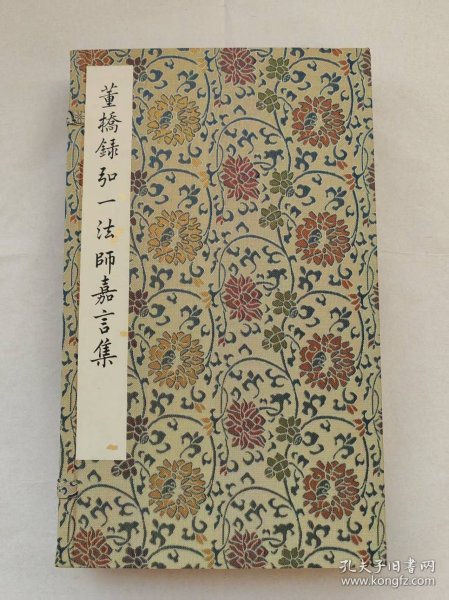 董橋録弘一法師嘉言集
孔夫子旧书网
www.kongfz.com